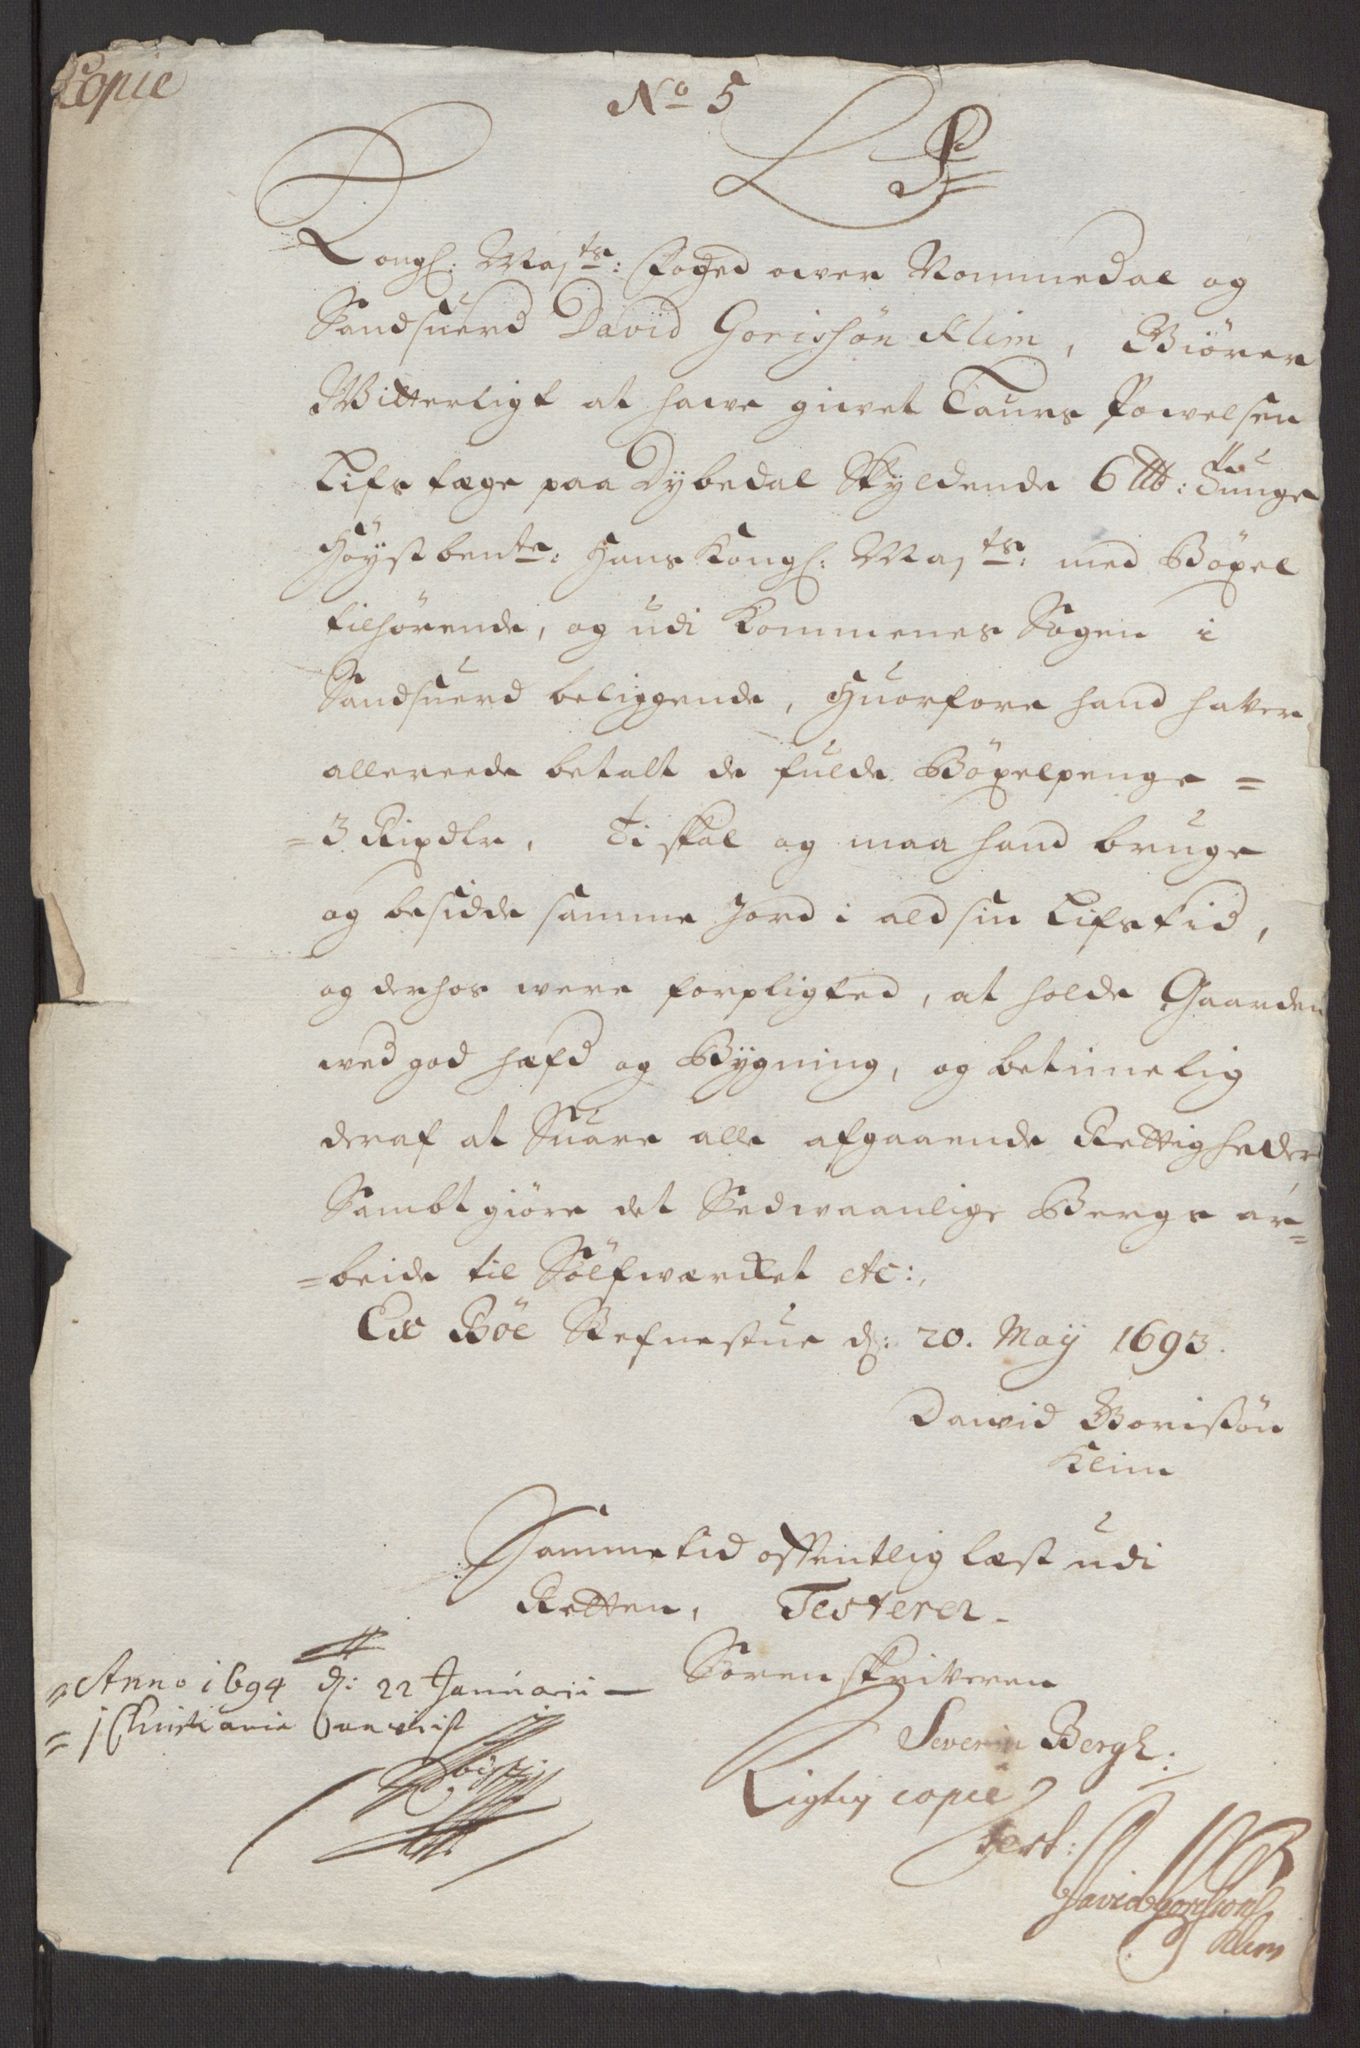 Copie
No 5
L S
Kongl: Maj:ts: Foged over Nommedal og
Sandsuerd David Gorishøn Klim, Giører
Witterligt at hawe giwet Laurs Powelsen
Lifs fæste paa Dybedal Skyldende 6 Lb: Tunge
Høyst bente: Hans Kongl: Maj:ts: med Bøxel
tilhørende, og udi Kommenes Sogen i
Sandsuerd beliggende, Huorfore hand haver
allereede betalt de fulde Bøxelpenge =
= 3 Rixdlr, Ti skal og maa hand bruge
og besidde samme Jord i ald sin Lifs tid,
og derhos were forpligted, at holde Gaarden
wed god hæfd og Bygning, og betimelig
deraf at Suare alle afgaaende Rettigheder
Sambt giøre det Sedwaanlige Bergs ar=
=beide til Sølfwærcket etc:,
Ex Bøe Stefnestue d: 20. Maij 1693.
Dawid Gorissøn
Klim
Samme tid offentlig læst udi
Retten, Testerer
Sorenskriveren
Severin Bergh:
Anno 1694 d: 22 Januarii
i Christiania
Rigtig copie
test:
David Gorisson
Klim